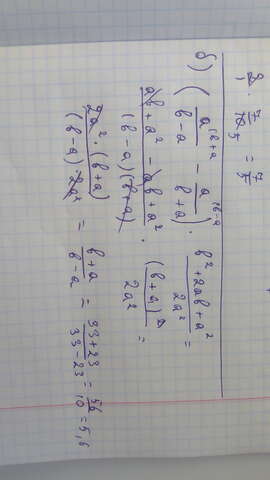 2 · 7/10 5 = 7/5
б) ( a \b+a / b-a - a \b-a / b+a ) · b² + 2ab + a² / 2a² =
ab + a² - ab + a² / (b-a)(b+a) · (b+a)² / 2a² =
2a² · (b+a) / (b-a) 2a² = b+a / b-a = 33+23 / 33-23 = 56/10 = 5,6